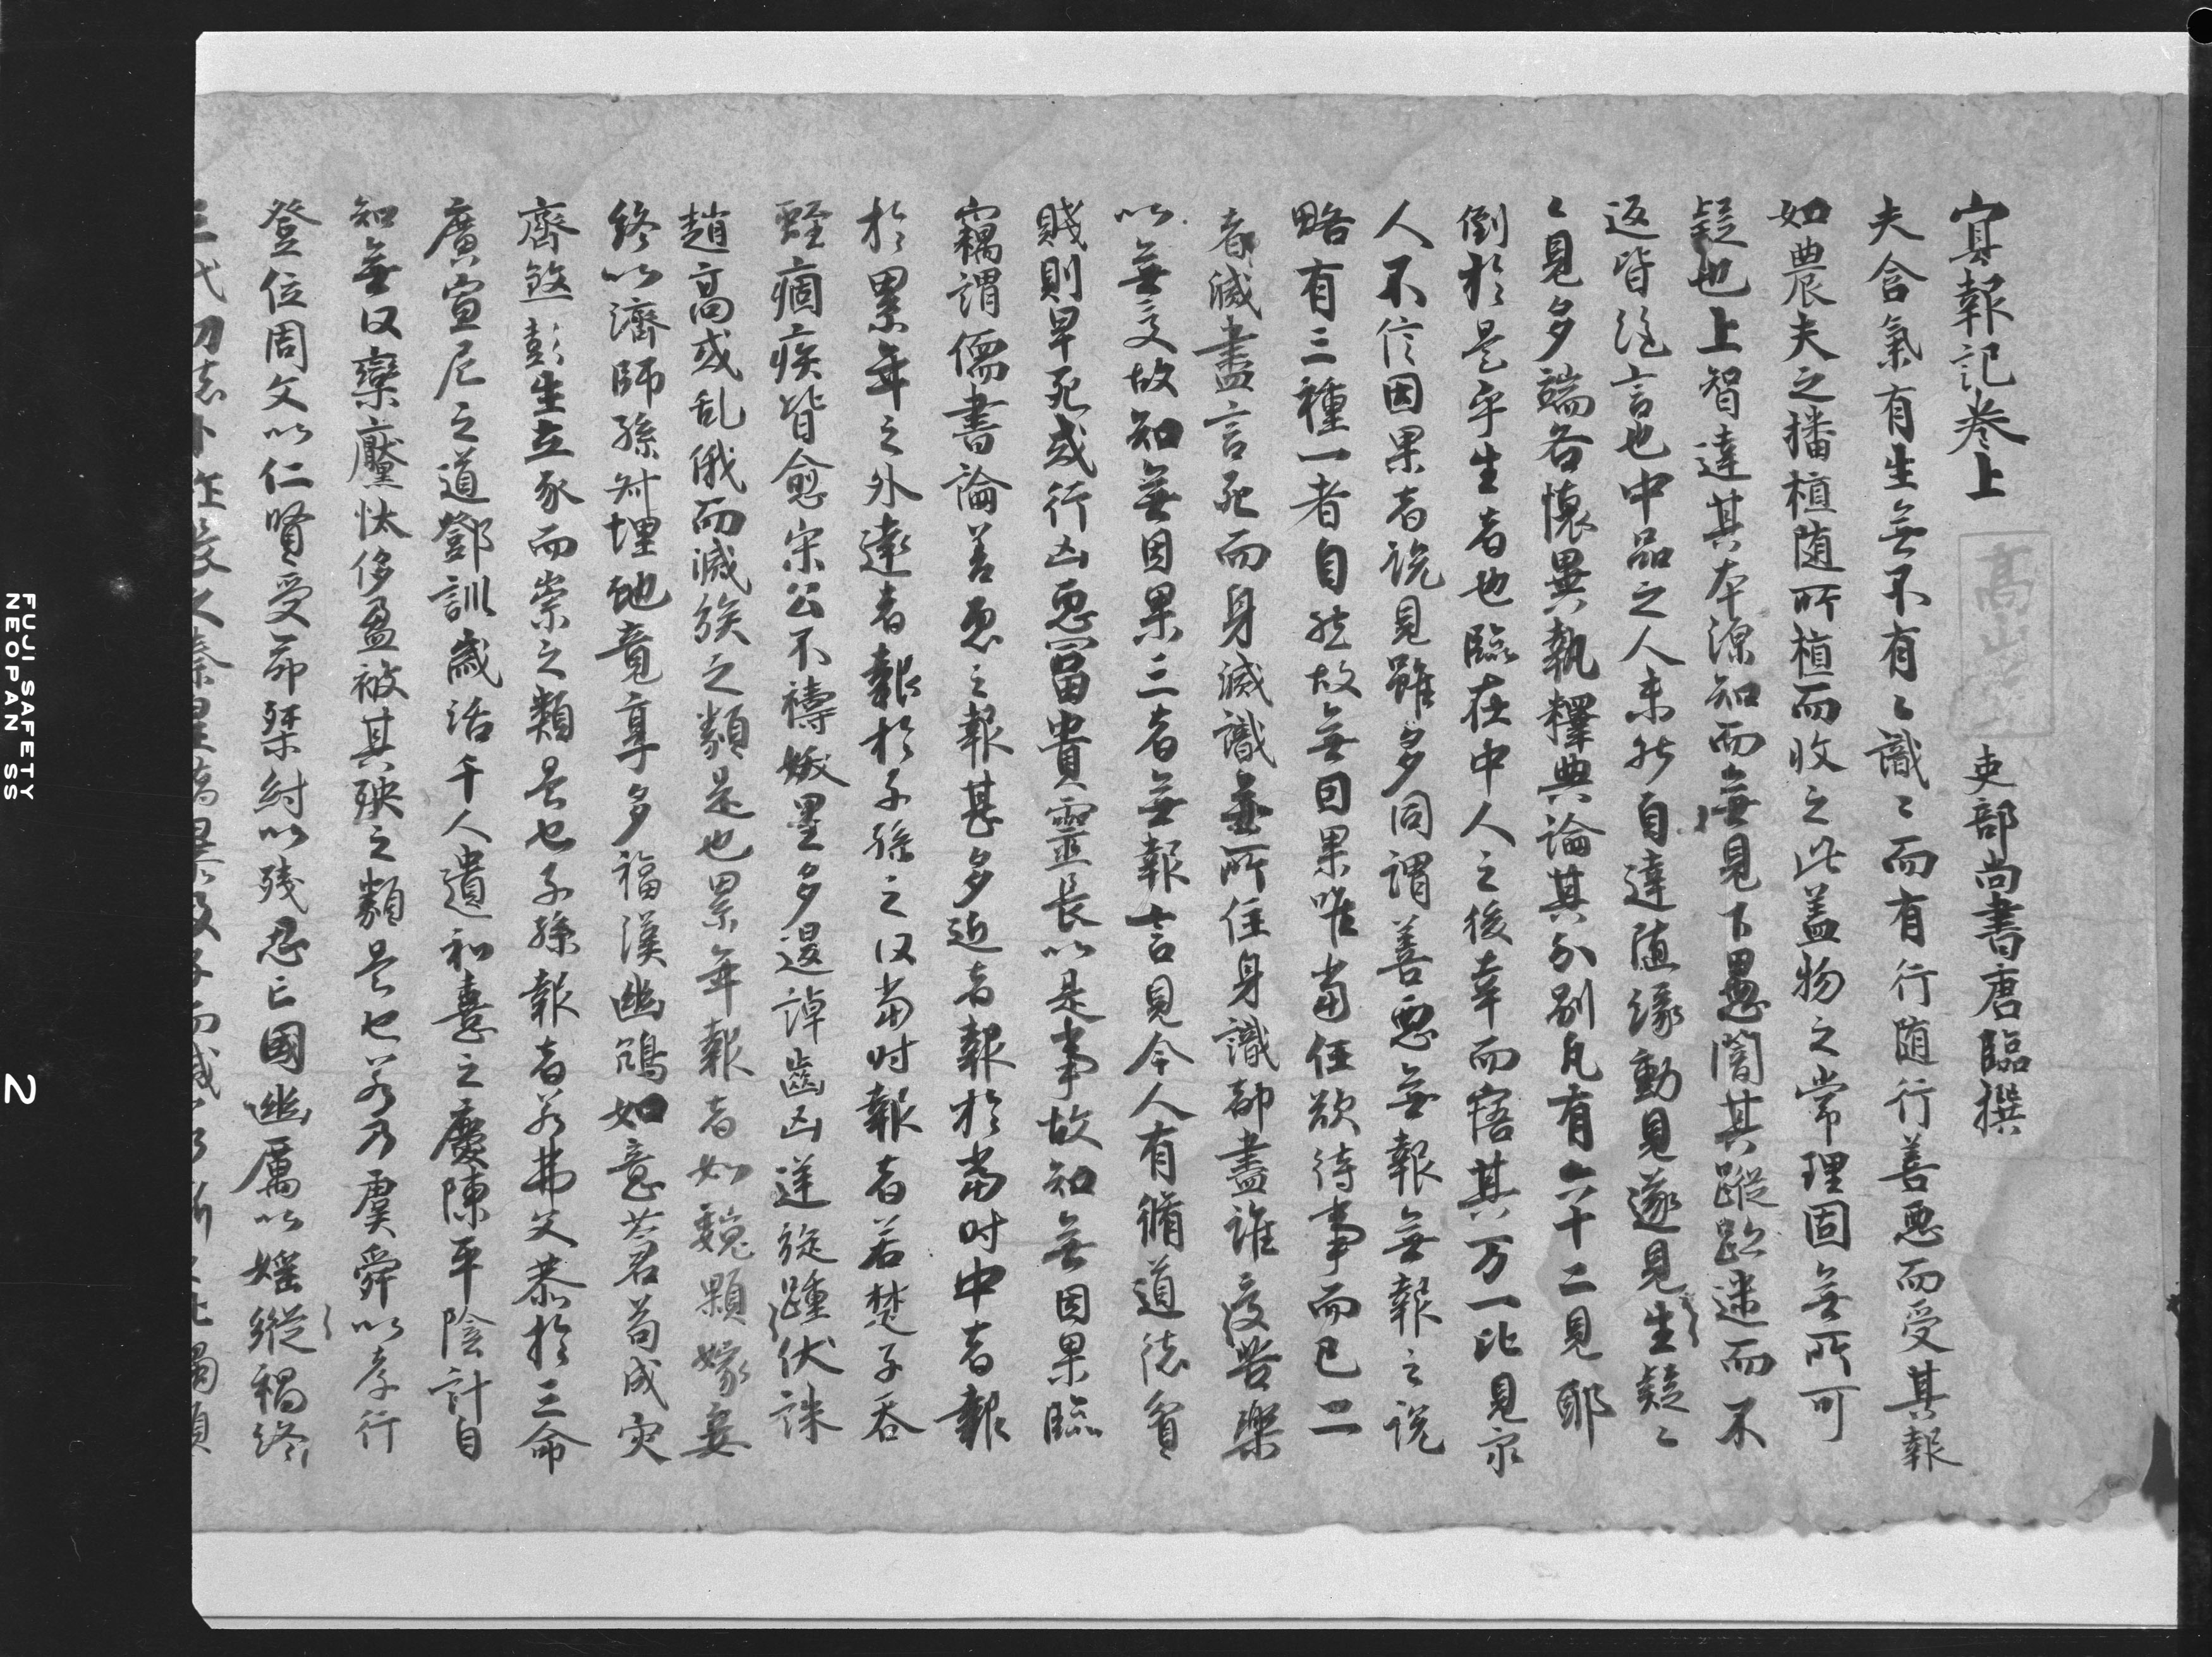 冥報記卷上 高山寺 吏部尚書唐臨撰
夫含氣有生無不有〻識〻而有行随行善惡而受其報
如農夫之播植随所植而收之此盖物之常理固無所可
疑也上智達其本源知而無見下愚闇其蹤迹迷而不
返皆絶言也中品之人未能自達随縁動見遂見生疑〻
〻見多端各懷異執釋典論其分別凡有六十二見耶
倒於是乎生者也臨在中人之後幸而寤其万一比見衆
人不信因果者說見雖多同謂善惡無報無報之說
略有三種一者自然故無因果唯當任欲待事而已二
者滅盡言死而身滅識無所住身識都盡誰受苦樂
以無受故知無因果三者無報言見今人有脩道德貧
賤則早死或行凶惡富貴靈長以是事故知無因果臨
竊謂儒書論善惡之報甚多近者報於當时中者報
於累年之外遠者報於子孫之後當时報者若楚子吞
蛭痼疾皆愈宋公不禱妖星多退諱齒凶逆旋踵伏誅
趙高或乱俄而滅族之類是也累年報者如魏顆嫁妾
終以濟師孫叔埋虵竟享多福漢幽鴆如意苍君苟成灾
齊煞彭生立豕而祟之類是也子孫報者若弗父恭於三命
廣宣尼之道鄧訓歲活千人遺和熹之慶陳平陰計自
知無後欒黶忲侈盈被其殃之類是也若乃虞舜以孝行
登位周文以仁賢受命桀紂以殘忍亡國幽厲以婬縱禍終
三代